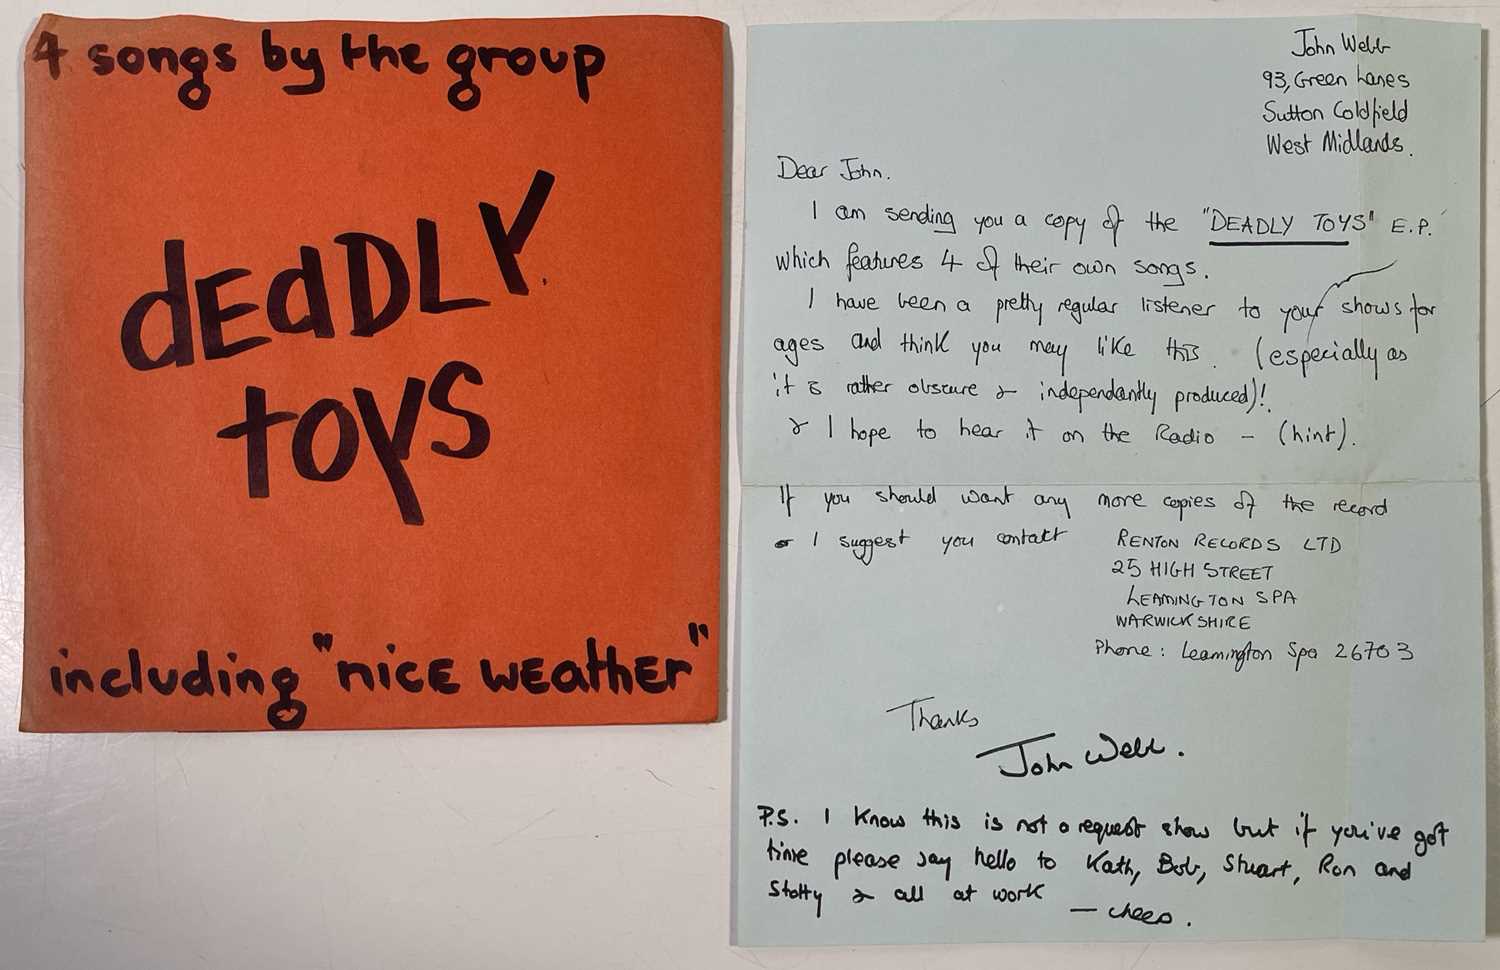 4 songs by the group
dEadLY.
toys
including "nice weather"
John Webb
93, Green Lanes
Sutton Coldfield
West Midlands.
Dear John.
I am sending you a copy of the "DEADLY TOYS" E.P.
which features 4 of their own songs.
I have been a pretty regular listener to your shows for
ages and think you may like this. (especially as
it is rather obscure & independantly produced)!
& I hope to hear it on the Radio - (hint).
If you should want any more copies of the record
I suggest you contact RENTON RECORDS LTD
25 HIGH STREET
LEAMINGTON SPA
WARWICKSHIRE
Phone: Leamington Spa 26703
Thanks
John Webb.
P.S. I know this is not a request show but if you've got
time please say hello to Kath, Bob, Stuart, Ron and
Stotty & all at work — cheers.